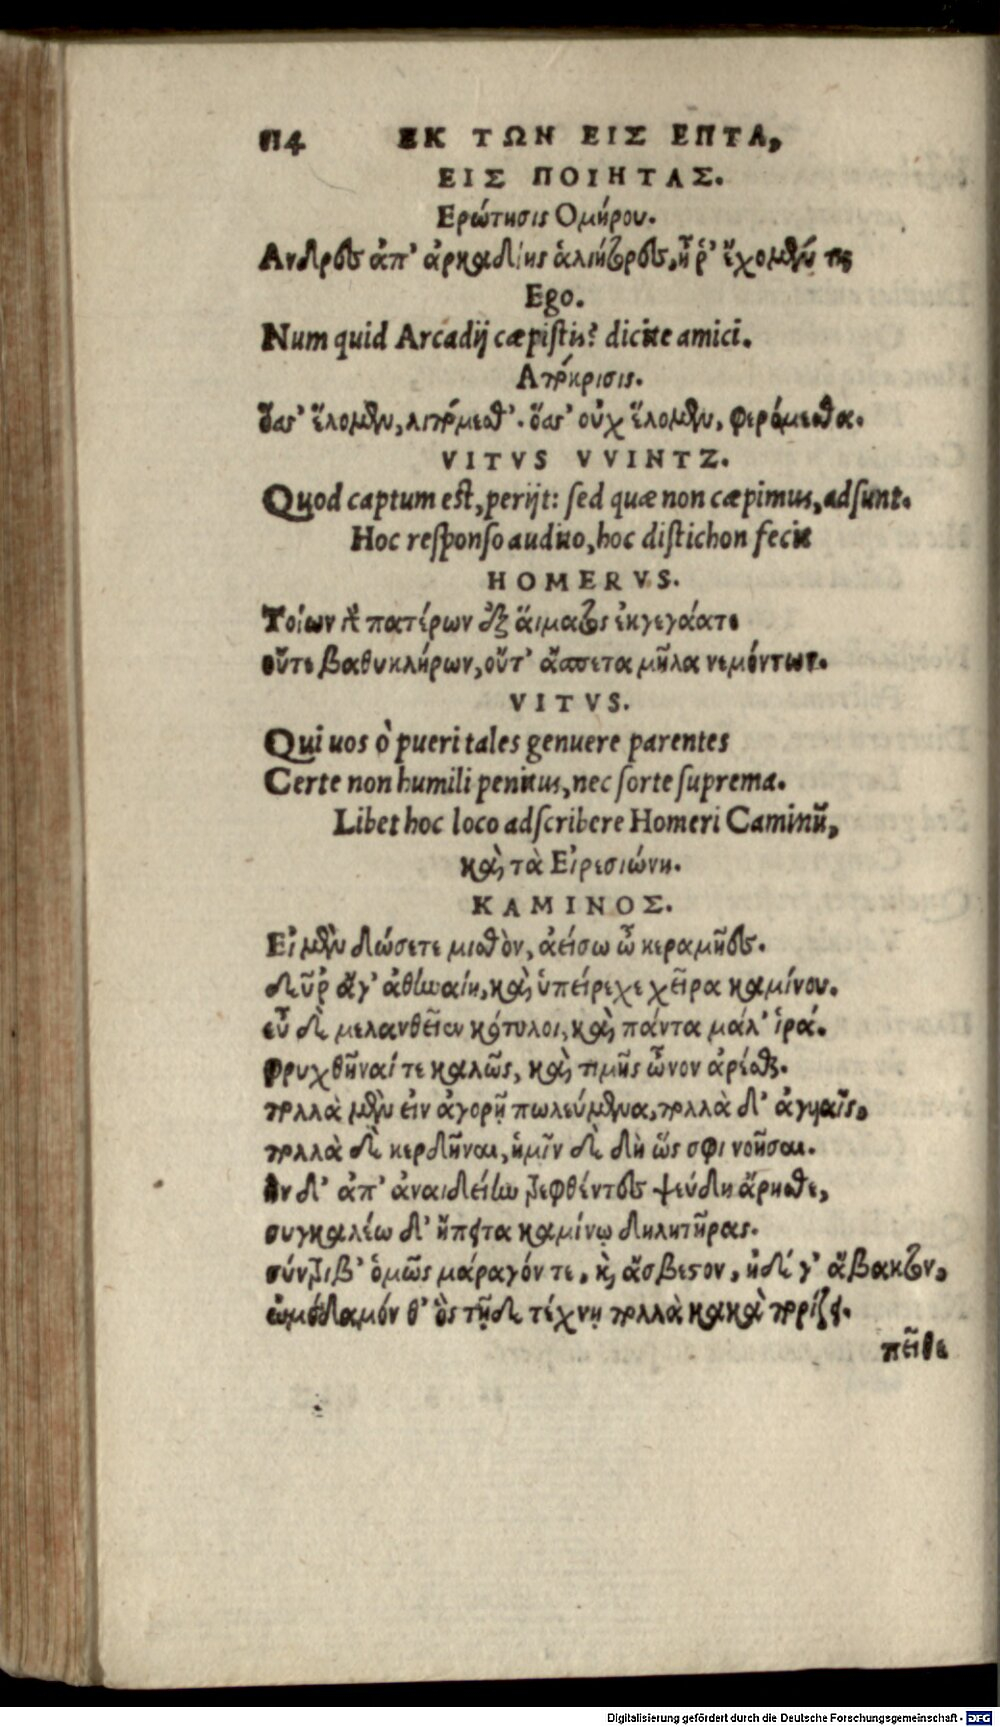 114 ΕΚ ΤΩΝ ΕΙΣ ΕΠΤΑ,
ΕΙΣ ΠΟΙΗΤΑΣ.
Ερώτησις Ομήρου.
Ανδρες ἀπ' ἀρκαδίης ἁλιήτορες, ἦ ῥ' ἔχομέν τι;
Ego.
Num quid Arcadij cæpistis? dicite amici.
Απόκρισις.
ὅας' ἕλομεν, λιπόμεσθ'. ὅας' οὐχ ἕλομεν, φερόμεσθα.
VITVS VVINTZ.
Quod captum est, perijt: sed quæ non cæpimus, adsunt.
Hoc responso audito, hoc distichon fecit
HOMERVS.
Τοίων γὰρ πατέρων ἐξ αἵματος ἐκγεγάατε
οὔτε βαθυκλήρων, οὔτ' ἄσπετα μῆλα νεμόντων.
VITVS.
Qui uos ò pueri tales genuere parentes
Certe non humili penitus, nec sorte suprema.
Libet hoc loco adscribere Homeri Caminũ,
καὶ τὰ Εἰρεσιώνη.
ΚΑΜΙΝΟΣ.
Εἰ μὲν δώσετε μισθὸν, ἀείσω ὦ κεραμῆες.
δεῦρ ἄγ' ἀθηναίη, καὶ ὑπείρεχε χεῖρα καμίνου.
εὖ δὲ μελανθεῖεν κότυλοι, καὶ πάντα μάλ' ἱρά.
φρυχθῆναί τε καλῶς, καὶ τιμῆς ὦνον ἀρέσθαι.
πολλὰ μὲν εἰν ἀγορῇ πωλεύμενα, πολλὰ δ' ἀγυιαῖς,
πολλὰ δὲ κερδῆναι, ἡμῖν δὲ δὴ ὥς σφι νοῆσαι.
Ην δ' ἀπ' ἀναιδείην τρεφθέντες ψεύδη ἄρησθε,
συγκαλέω δ' ἤπειτα καμίνῳ δηλητῆρας.
σύντριβ' ὁμῶς μάραγόν τε, καὶ ἄσβεστον, ἠδέ γ' ἄβακτον,
ὠμόδαμόν θ' ὃς τῇδε τέχνῃ πολλὰ κακὰ πορίζει.
πεῖθε
Digitalisierung gefördert durch die Deutsche Forschungsgemeinschaft - DFG